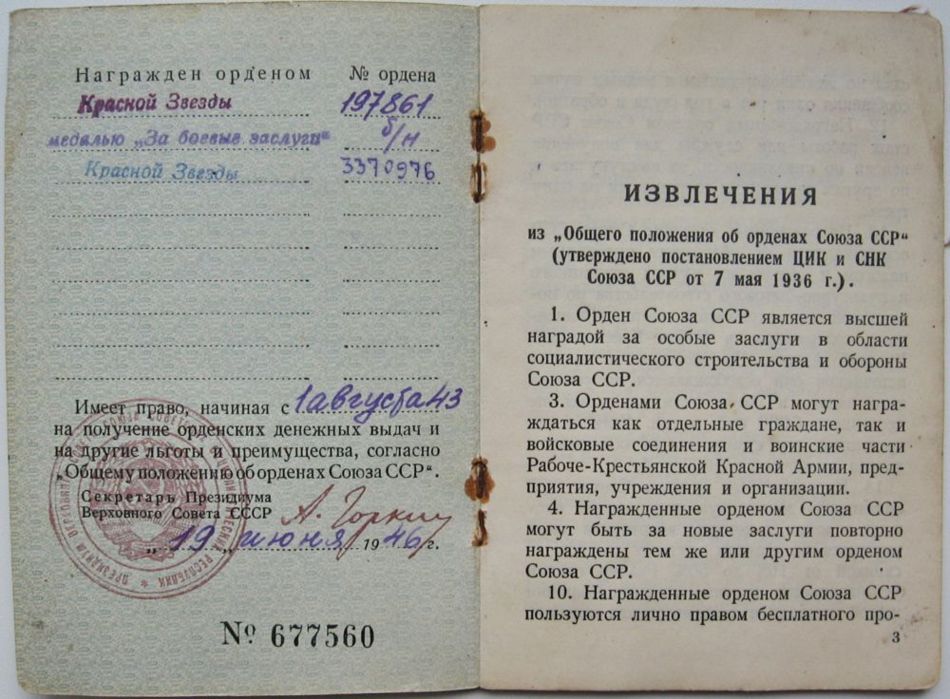 Награжден орденом № ордена
Красной Звезды 197861
медалью „За боевые заслуги“ б/н
Красной Звезды 3370976
Имеет право, начиная с 1 августа 43
на получение орденских денежных выдач и
на другие льготы и преимущества, согласно
„Общему положению об орденах Союза ССР“.
Секретарь Президиума
Верховного Совета СССР А. Горкин
„ 19 „ июня 1946 г.
№ 677560
ИЗВЛЕЧЕНИЯ
из „Общего положения об орденах Союза ССР“
(утверждено постановлением ЦИК и СНК
Союза ССР от 7 мая 1936 г.).
1. Орден Союза ССР является высшей
наградой за особые заслуги в области
социалистического строительства и обороны
Союза ССР.
3. Орденами Союза ССР могут награ-
ждаться как отдельные граждане, так и
войсковые соединения и воинские части
Рабоче-Крестьянской Красной Армии, пред-
приятия, учреждения и организации.
4. Награжденные орденом Союза ССР
могут быть за новые заслуги повторно
награждены тем же или другим орденом
Союза ССР.
10. Награжденные орденом Союза ССР
пользуются лично правом бесплатного про-
3